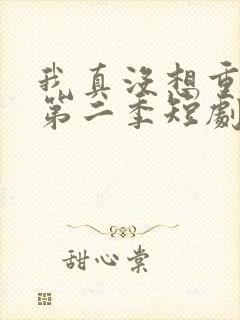 我真沒想重
第二季短劇
甜心棠